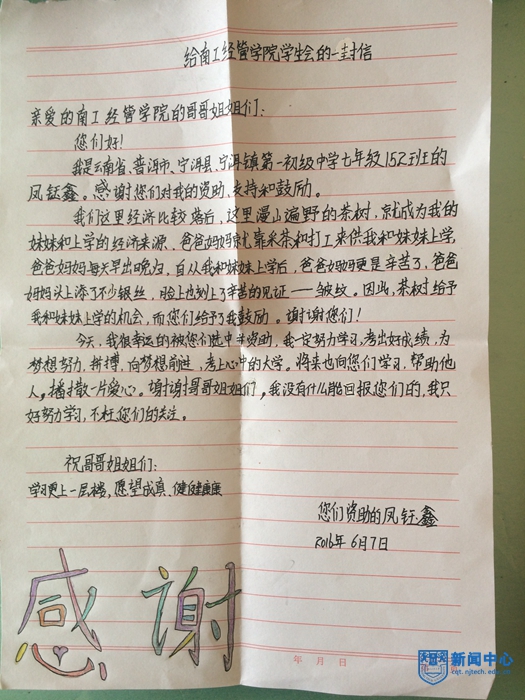 给南工经管学院学生会的一封信
亲爱的南工经管学院的哥哥姐姐们：
您们好！
我是云南省、普洱市、宁洱县、宁洱镇第一初级中学七年级152班的
凤钰鑫。感谢您们对我的资助、支持和鼓励。
我们这里经济比较落后，这里漫山遍野的茶树，就成为我的
妹妹和上学的经济来源、爸爸妈妈就靠采茶和打工来供我和妹妹上学，
爸爸妈妈每天早出晚归，自从我和妹妹上学后，爸爸妈妈更是辛苦了，爸爸
妈妈头上添了不少银丝，脸上也刻上了辛苦的见证——皱纹。因此，茶树给予
我和妹妹上学的机会，而您们给予了我鼓励。谢谢您们！
今天，我很幸运的被您们选中并资助，我一定努力学习，考出好成绩，为
梦想努力，拼搏，向梦想前进，考上心中的大学。将来也向您们学习，帮助他
人。播撒一片爱心。谢谢哥哥姐姐们，我没有什么能回报您们的，我只
好努力学习，不枉您们的关注。
祝哥哥姐姐们：
学习更上一层楼，愿望成真、健健康康
您们资助的凤钰鑫
2016年6月7日
感谢
年 月 日
新闻中心
cqt.njtech.edu.cn